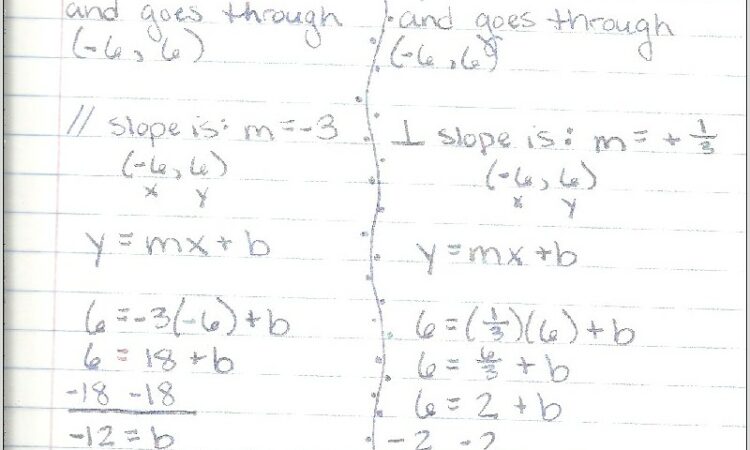 and goes through
(-6, 6)
// slope is: m = -3
(-6, 6)
x y
y = mx + b
6 = -3(-6) + b
6 = 18 + b
-18 -18
-12 = b
and goes through
(-6, 6)
⊥ slope is: m = + 1/3
(-6, 6)
x y
y = mx + b
6 = (1/3)(6) + b
6 = 6/3 + b
6 = 2 + b
-2 -2